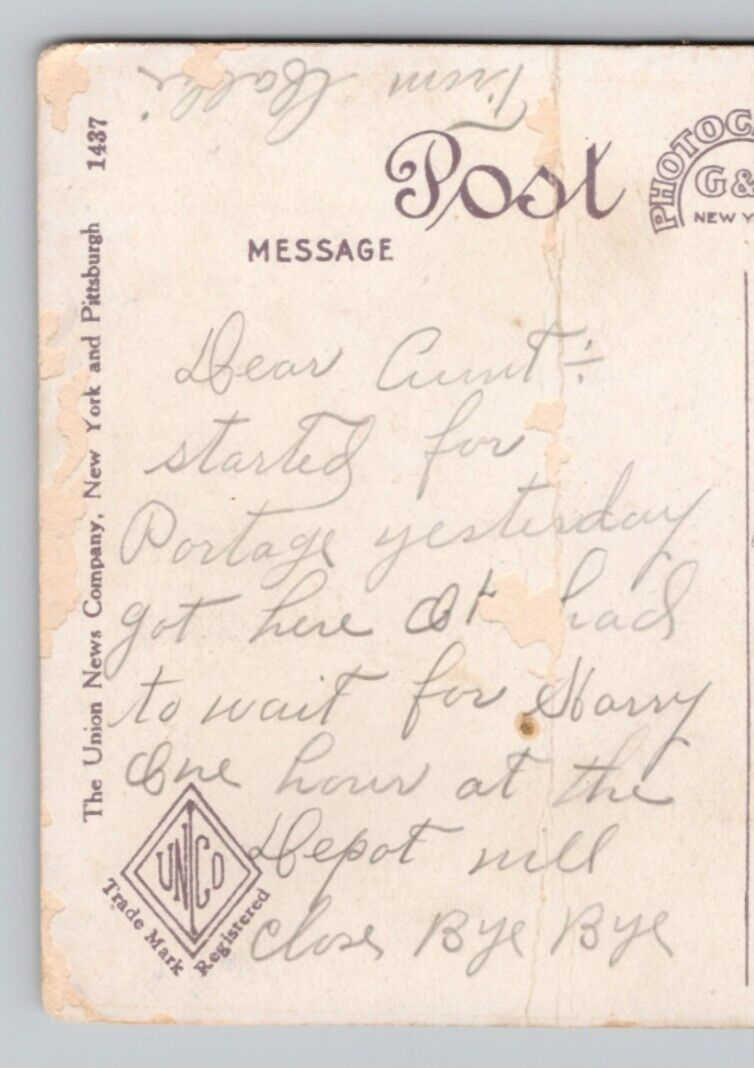 1437
The Union News Company, New York and Pittsburgh
Post
PHOTOC
G&
NEW Y
MESSAGE
Dear Aunt
started for
Portage yesterday
got here had
to wait for Harry
One hour at the
Depot will
close Bye Bye
From
UNICO
Trade Mark Registered